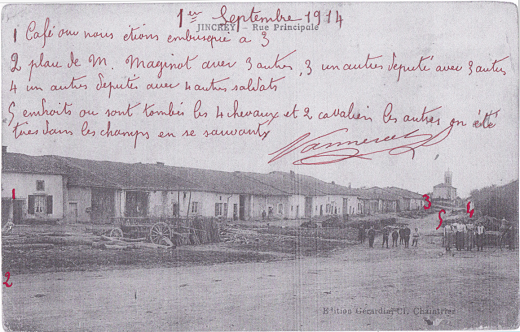 1er Septembre 1914
JINCREY – Rue Principale
1 Café ou nous étions embusqué a 3
2 place de M. Maginot avec 3 autres, 3 un autres député avec 3 autres
4 un autres députés avec 4 autres soldats
5 endroits ou sont tombés les 4 chevaux et 2 cavaliers les autres on été
tués dans les champs en se sauvants
1
3
5
4
2
Edition Gérardin, Cl. Chantriez